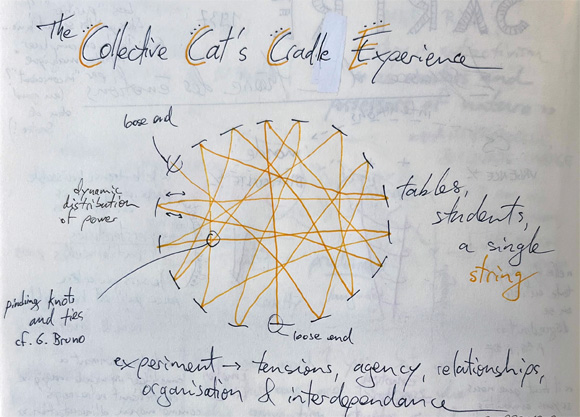 The Collective Cat's Cradle Experience
loose end
dynamic
distribution
of power
tables,
students,
a single
string
knots
and ties
cf. G. Bruno
loose end
experiment → tensions, agency, relationships,
organisation & interdependance